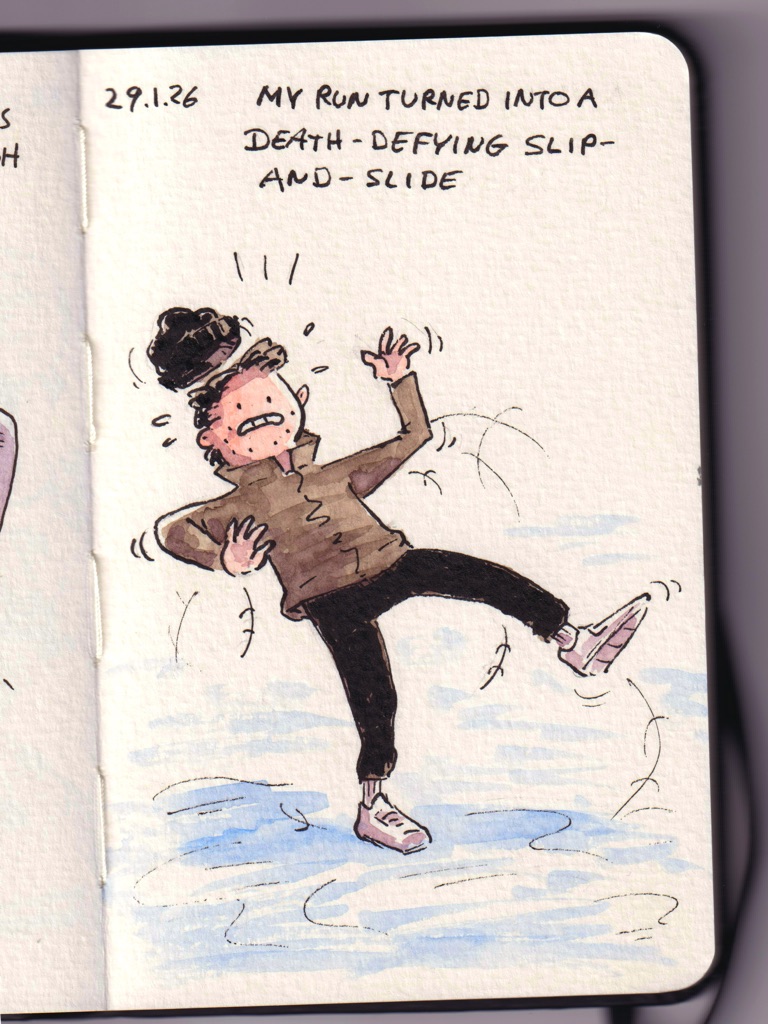 29.1.26 MY RUN TURNED INTO A
DEATH-DEFYING SLIP-
AND-SLIDE